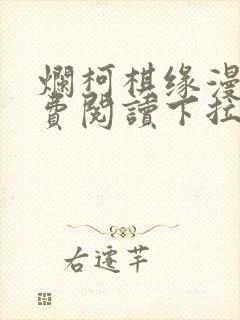 爛柯棋缘漫
費閱讀下拉
右遷芊